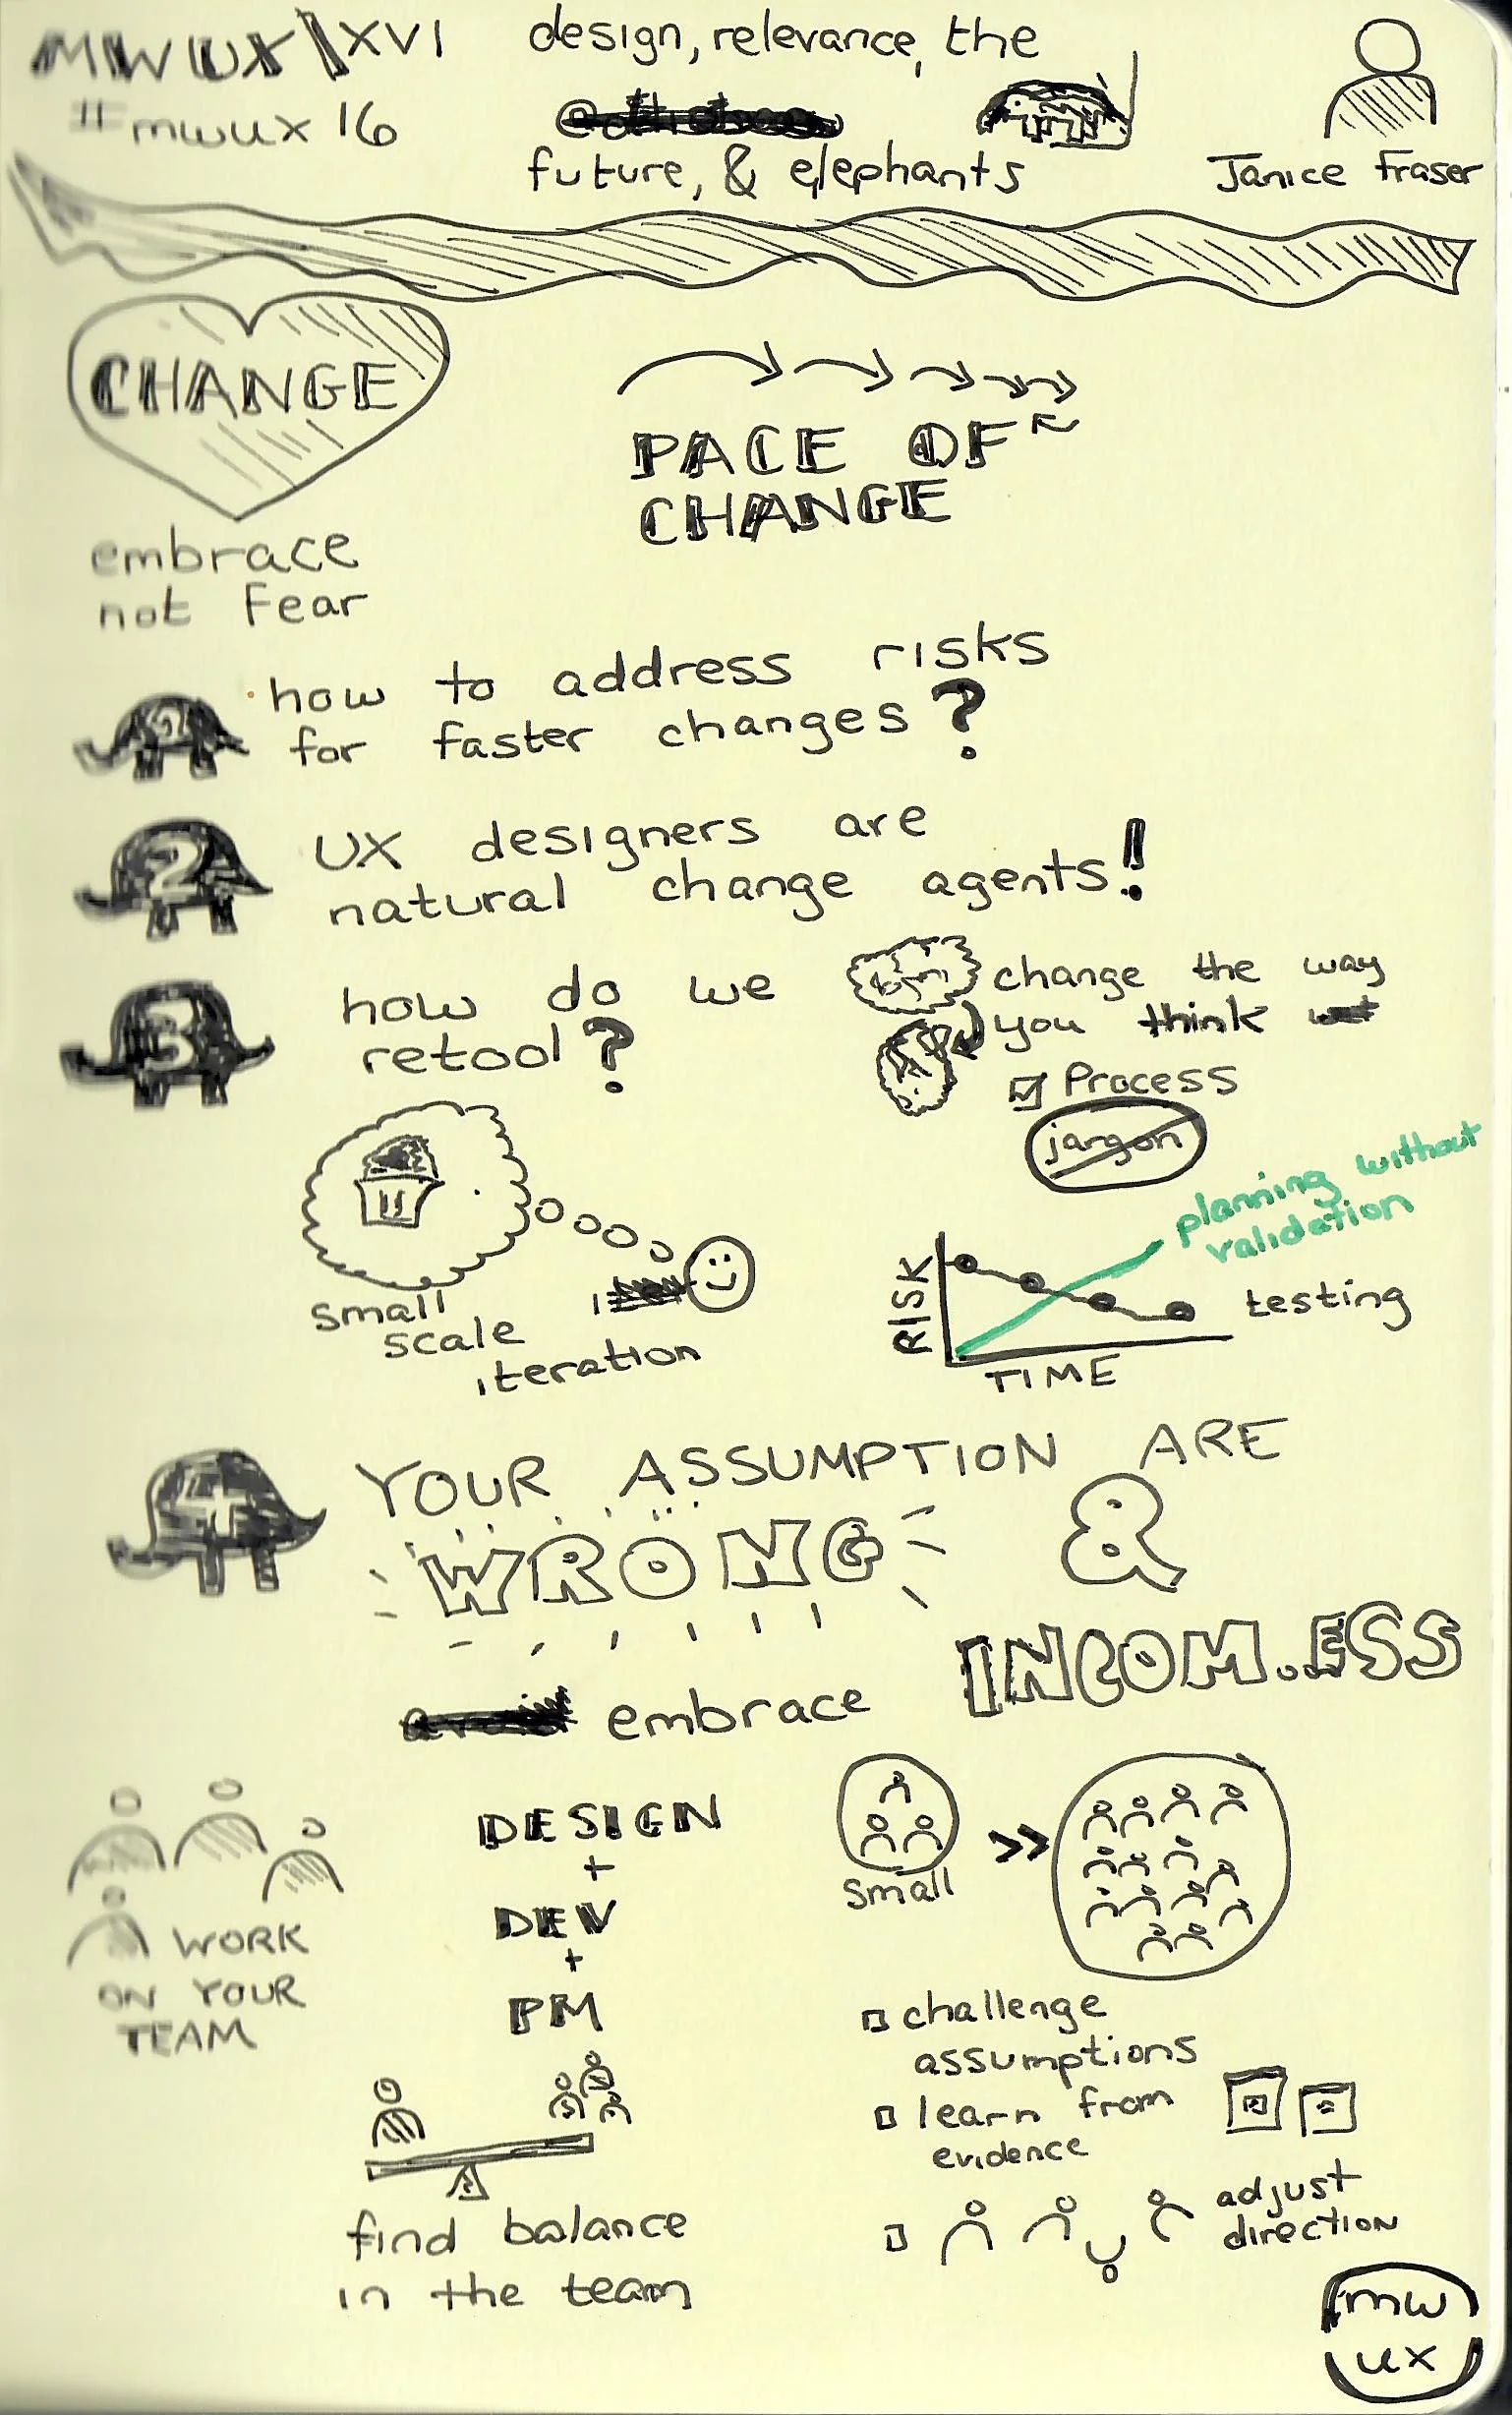 MWUX XVI
#mwux 16
design, relevance, the
future, & elephants
Janice Fraser
CHANGE
embrace
not Fear
PACE OF
CHANGE
how to address risks
for faster changes?
2
UX designers are
natural change agents!
3
how do we
retool?
change the way
you think
Process
jargon
small
scale
iteration
planning without
validation
RISK
testing
TIME
YOUR ASSUMPTION ARE
WRONG &
INCOM...ESS
embrace
WORK
ON YOUR
TEAM
DESIGN
+
DEV
+
PM
small
>>
find balance
in the team
challenge
assumptions
learn from
evidence
adjust
direction
mw
ux